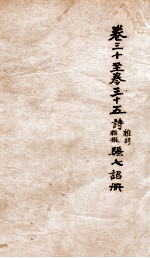 卷三十至卷三十五詩雜詩雜擬騷七詔册